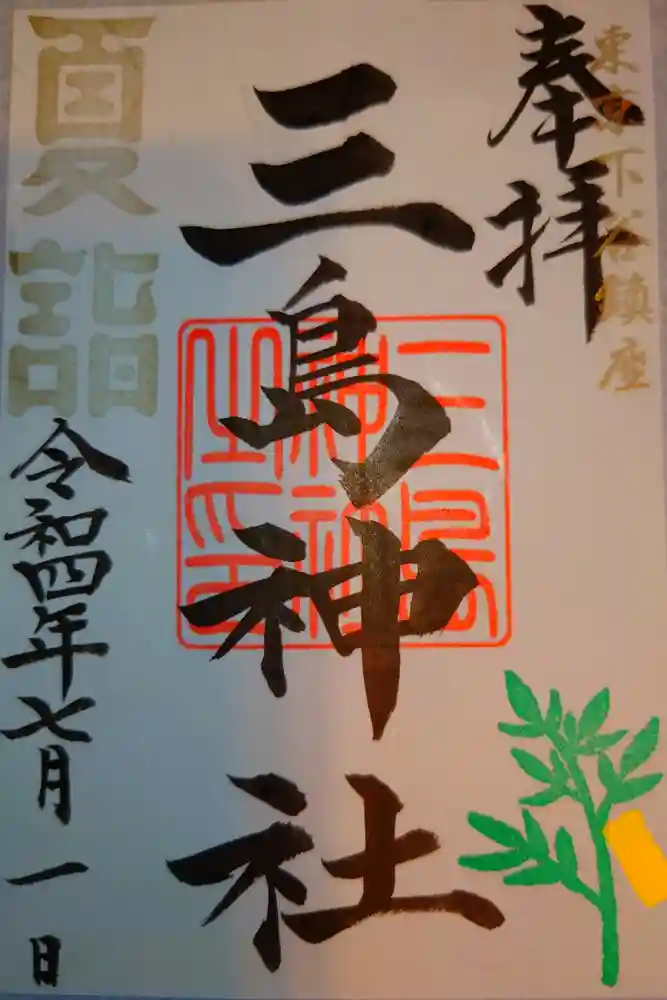 奉拝
東京下谷鎮座
三島神社
三島神社之印
夏詣
令和四年七月一日